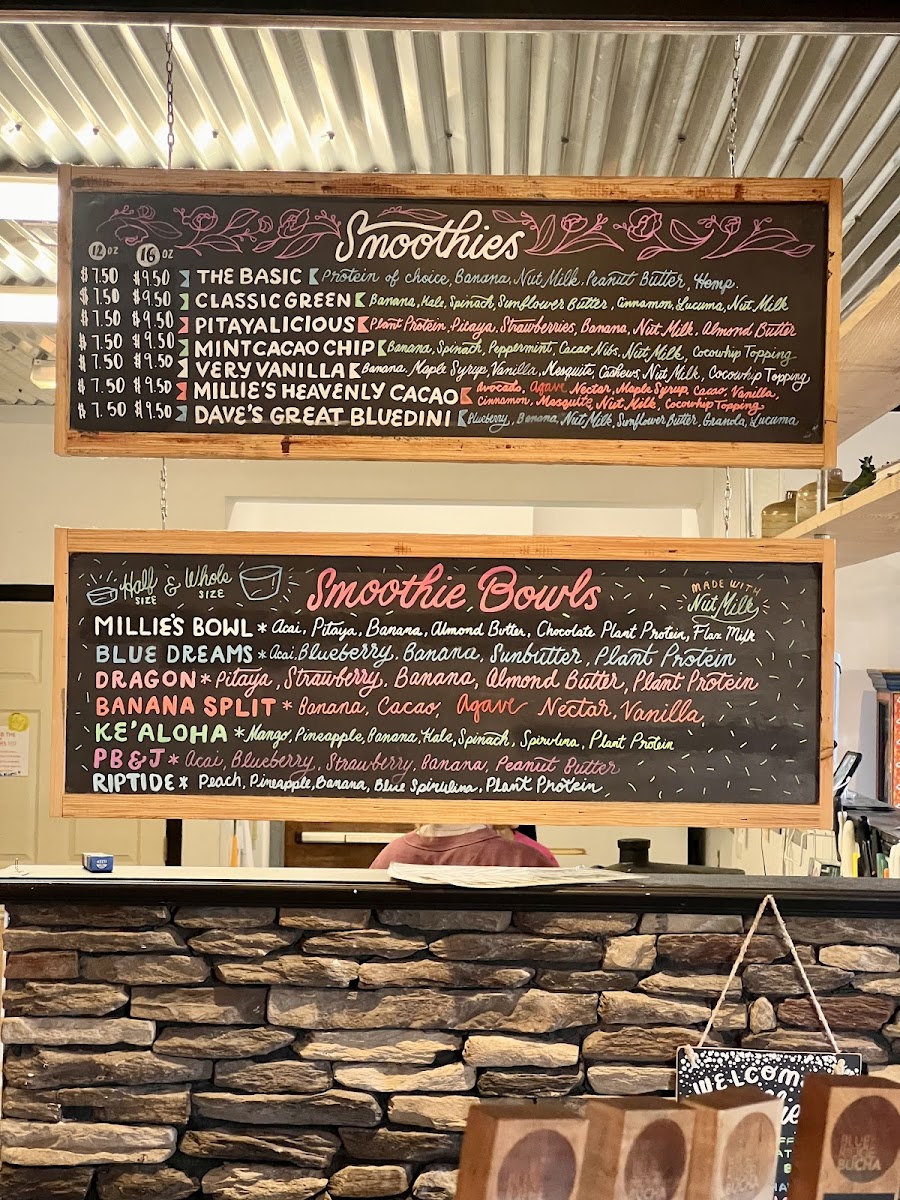 Smoothies
12 oz 16 oz
$7.50 $9.50 THE BASIC Protein of choice, Banana, Nut Milk, Peanut Butter, Hemp.
$7.50 $9.50 CLASSIC GREEN Banana, Kale, Spinach, Sunflower Butter, Cinnamon, Lucuma, Nut Milk
$7.50 $9.50 PITAYALICIOUS Plant Protein, Pitaya, Strawberries, Banana, Nut Milk, Almond Butter
$7.50 $9.50 MINT CACAO CHIP Banana, Spinach, Peppermint, Cacao Nibs, Nut Milk, Cocowhip Topping
$7.50 $9.50 VERY VANILLA Banana, Maple Syrup, Vanilla, Mesquite, Cashews, Nut Milk, Cocowhip Topping
$7.50 $9.50 MILLIE'S HEAVENLY CACAO Avocado, Agave Nectar, Maple Syrup, Cacao, Vanilla,
Cinnamon, Mesquite, Nut Milk, Cocowhip Topping
$7.50 $9.50 DAVE'S GREAT BLUEDINI Blueberry, Banana, Nut Milk, Sunflower Butter, Granola, Lucuma
Half SIZE & Whole SIZE
Smoothie Bowls
MADE WITH
Nut Milk
MILLIE'S BOWL * Acai, Pitaya, Banana, Almond Butter, Chocolate Plant Protein, Flax Milk
BLUE DREAMS * Acai, Blueberry, Banana, Sunbutter, Plant Protein
DRAGON * Pitaya, Strawberry, Banana, Almond Butter, Plant Protein
BANANA SPLIT * Banana, Cacao, Agave Nectar, Vanilla,
KE'ALOHA * Mango, Pineapple, Banana, Kale, Spinach, Spirulina, Plant Protein
PB&J * Acai, Blueberry, Strawberry, Banana, Peanut Butter
RIPTIDE * Peach, Pineapple, Banana, Blue Spirulina, Plant Protein
WELCOME
BLUE
RIDGE
BUCHA